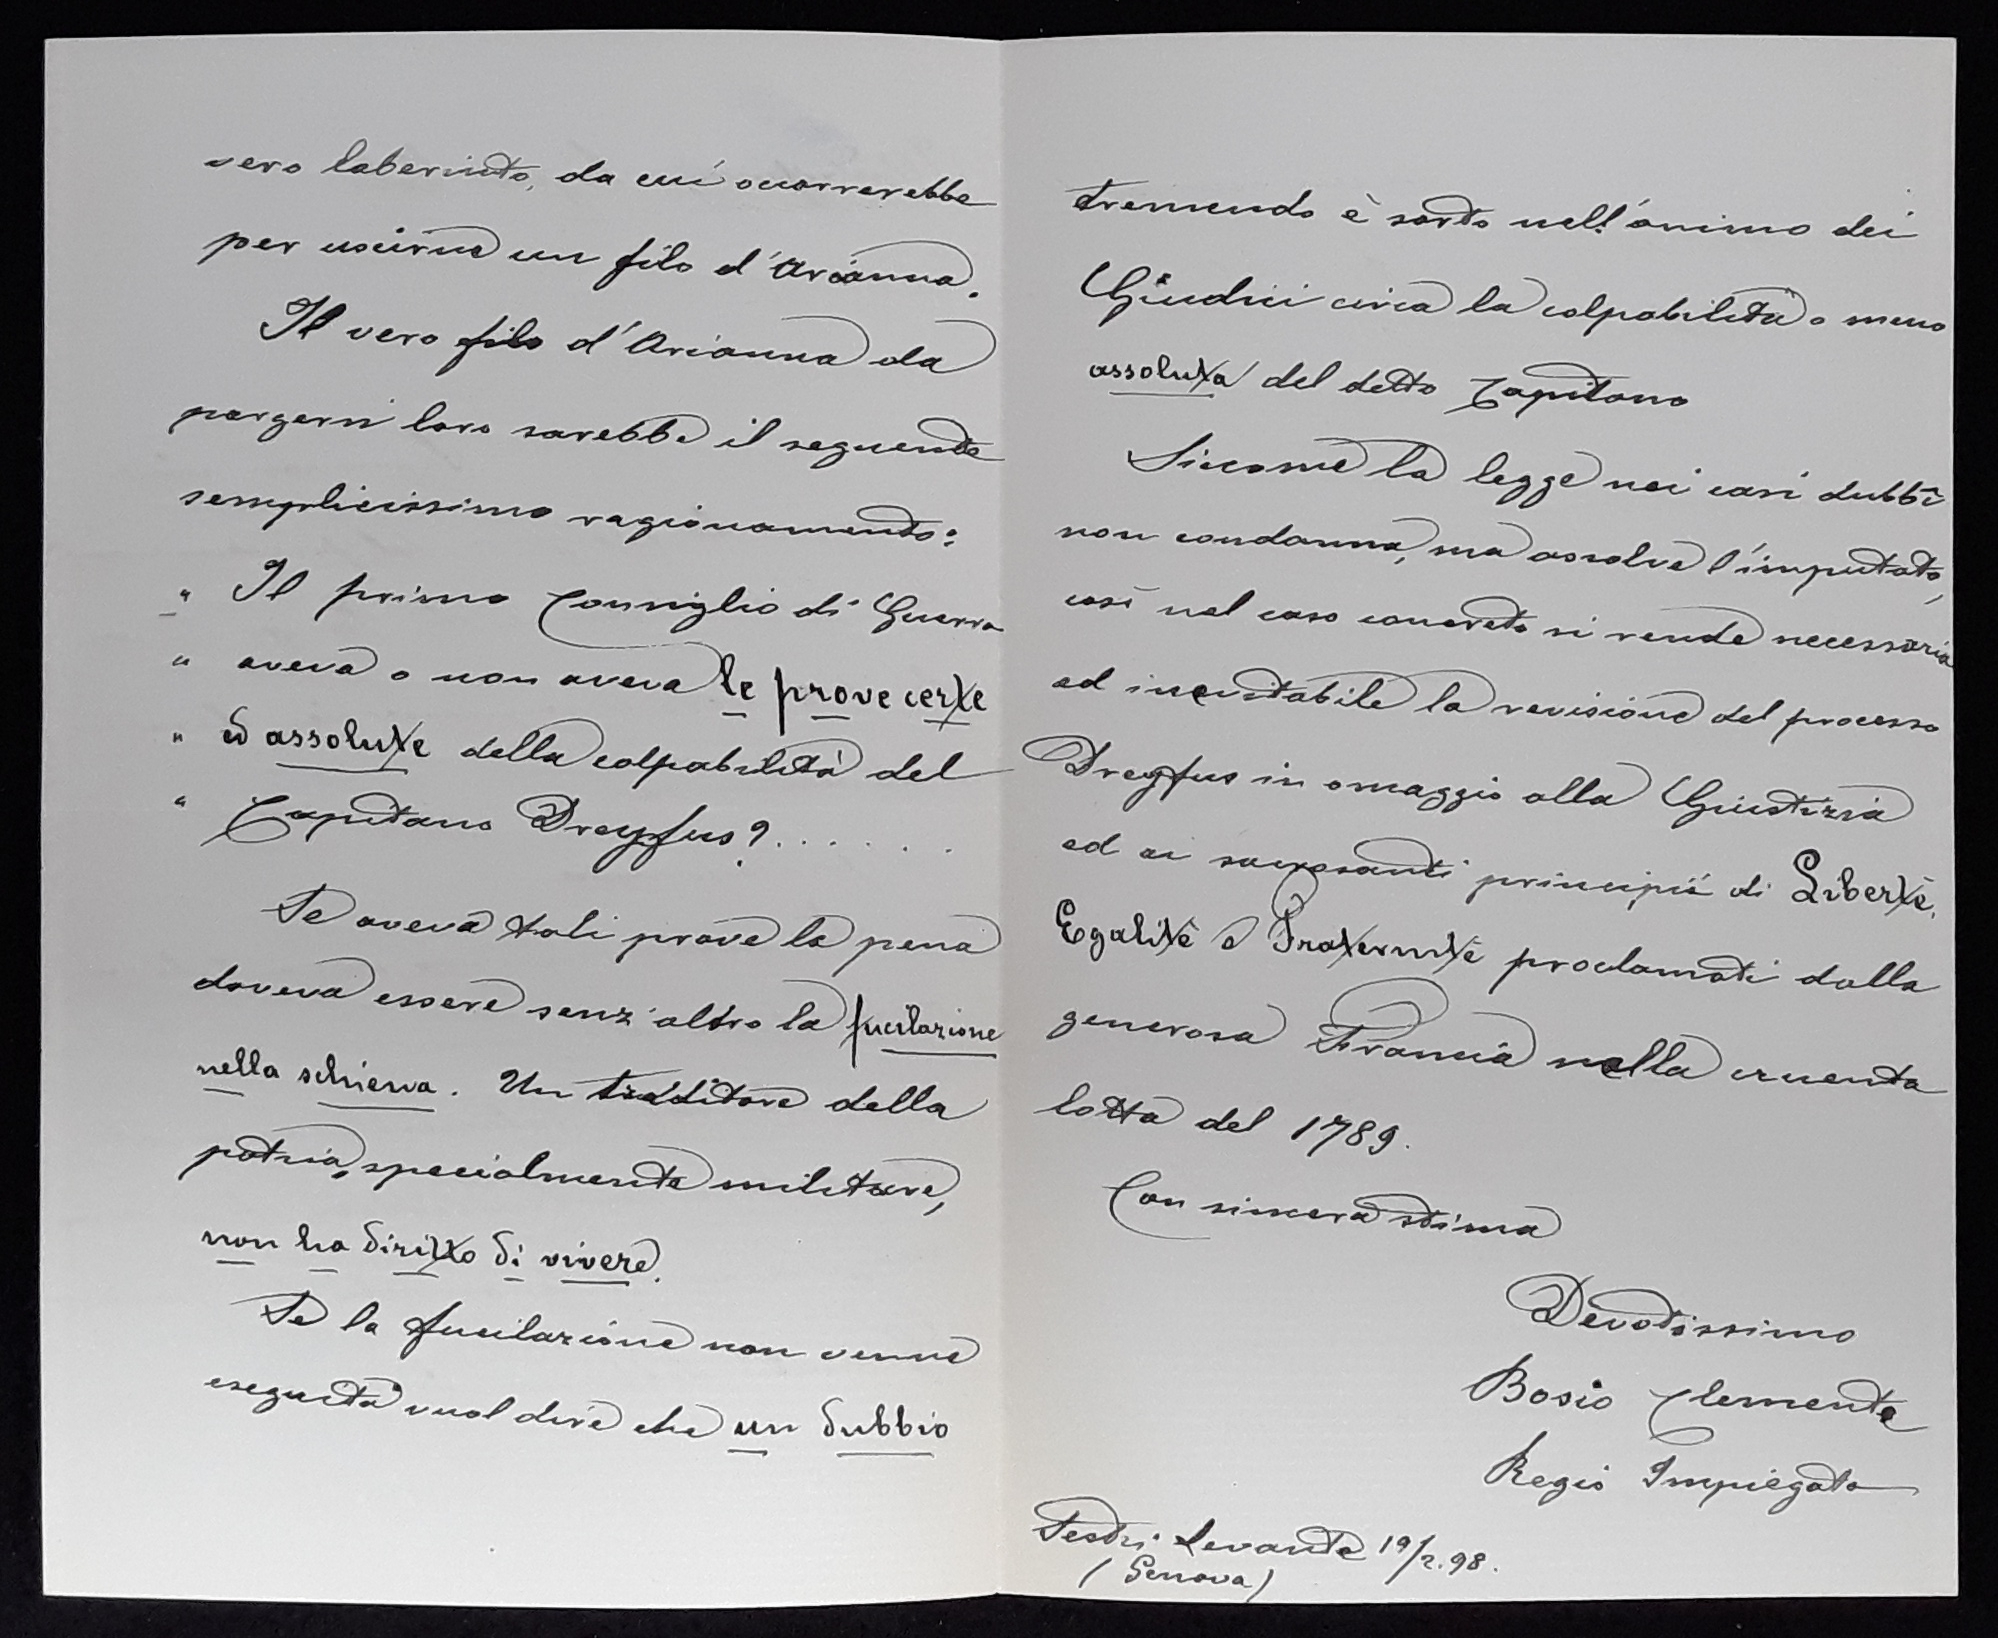 vero laberinto, da cui occorrerebbe
per uscirne un filo d'Arianna.
Il vero filo d'Arianna da
porgersi loro sarebbe il seguente
semplicissimo ragionamento:
" Il primo Consiglio di Guerra
" aveva o non aveva le prove certe
" ed assolute della colpabilità del
" Capitano Dreyfus? . . . . . .
Se aveva tali prove la pena
doveva essere senz'altro la fucilazione
nella schiena. Un traditore della
patria, specialmente militare,
non ha diritto di vivere.
Se la fucilazione non venne
eseguita vuol dire che un dubbio
tremendo è sorto nell'animo dei
Giudici circa la colpabilità o meno
assoluta del detto Capitano
Siccome la legge nei casi dubbî
non condanna, ma assolve l'imputato,
così nel caso concreto si rende necessaria
ed inevitabile la revisione del processo
Dreyfus in omaggio alla Giustizia
ed ai sacrosanti principii di Libertè,
Egalitè e Fraternitè proclamati dalla
generosa Francia nella cruenta
lotta del 1789.
Con sincera stima
Devotissimo
Bosio Clemente
Regio Impiegato
Sestri Levante 19/2.98.
(Genova)